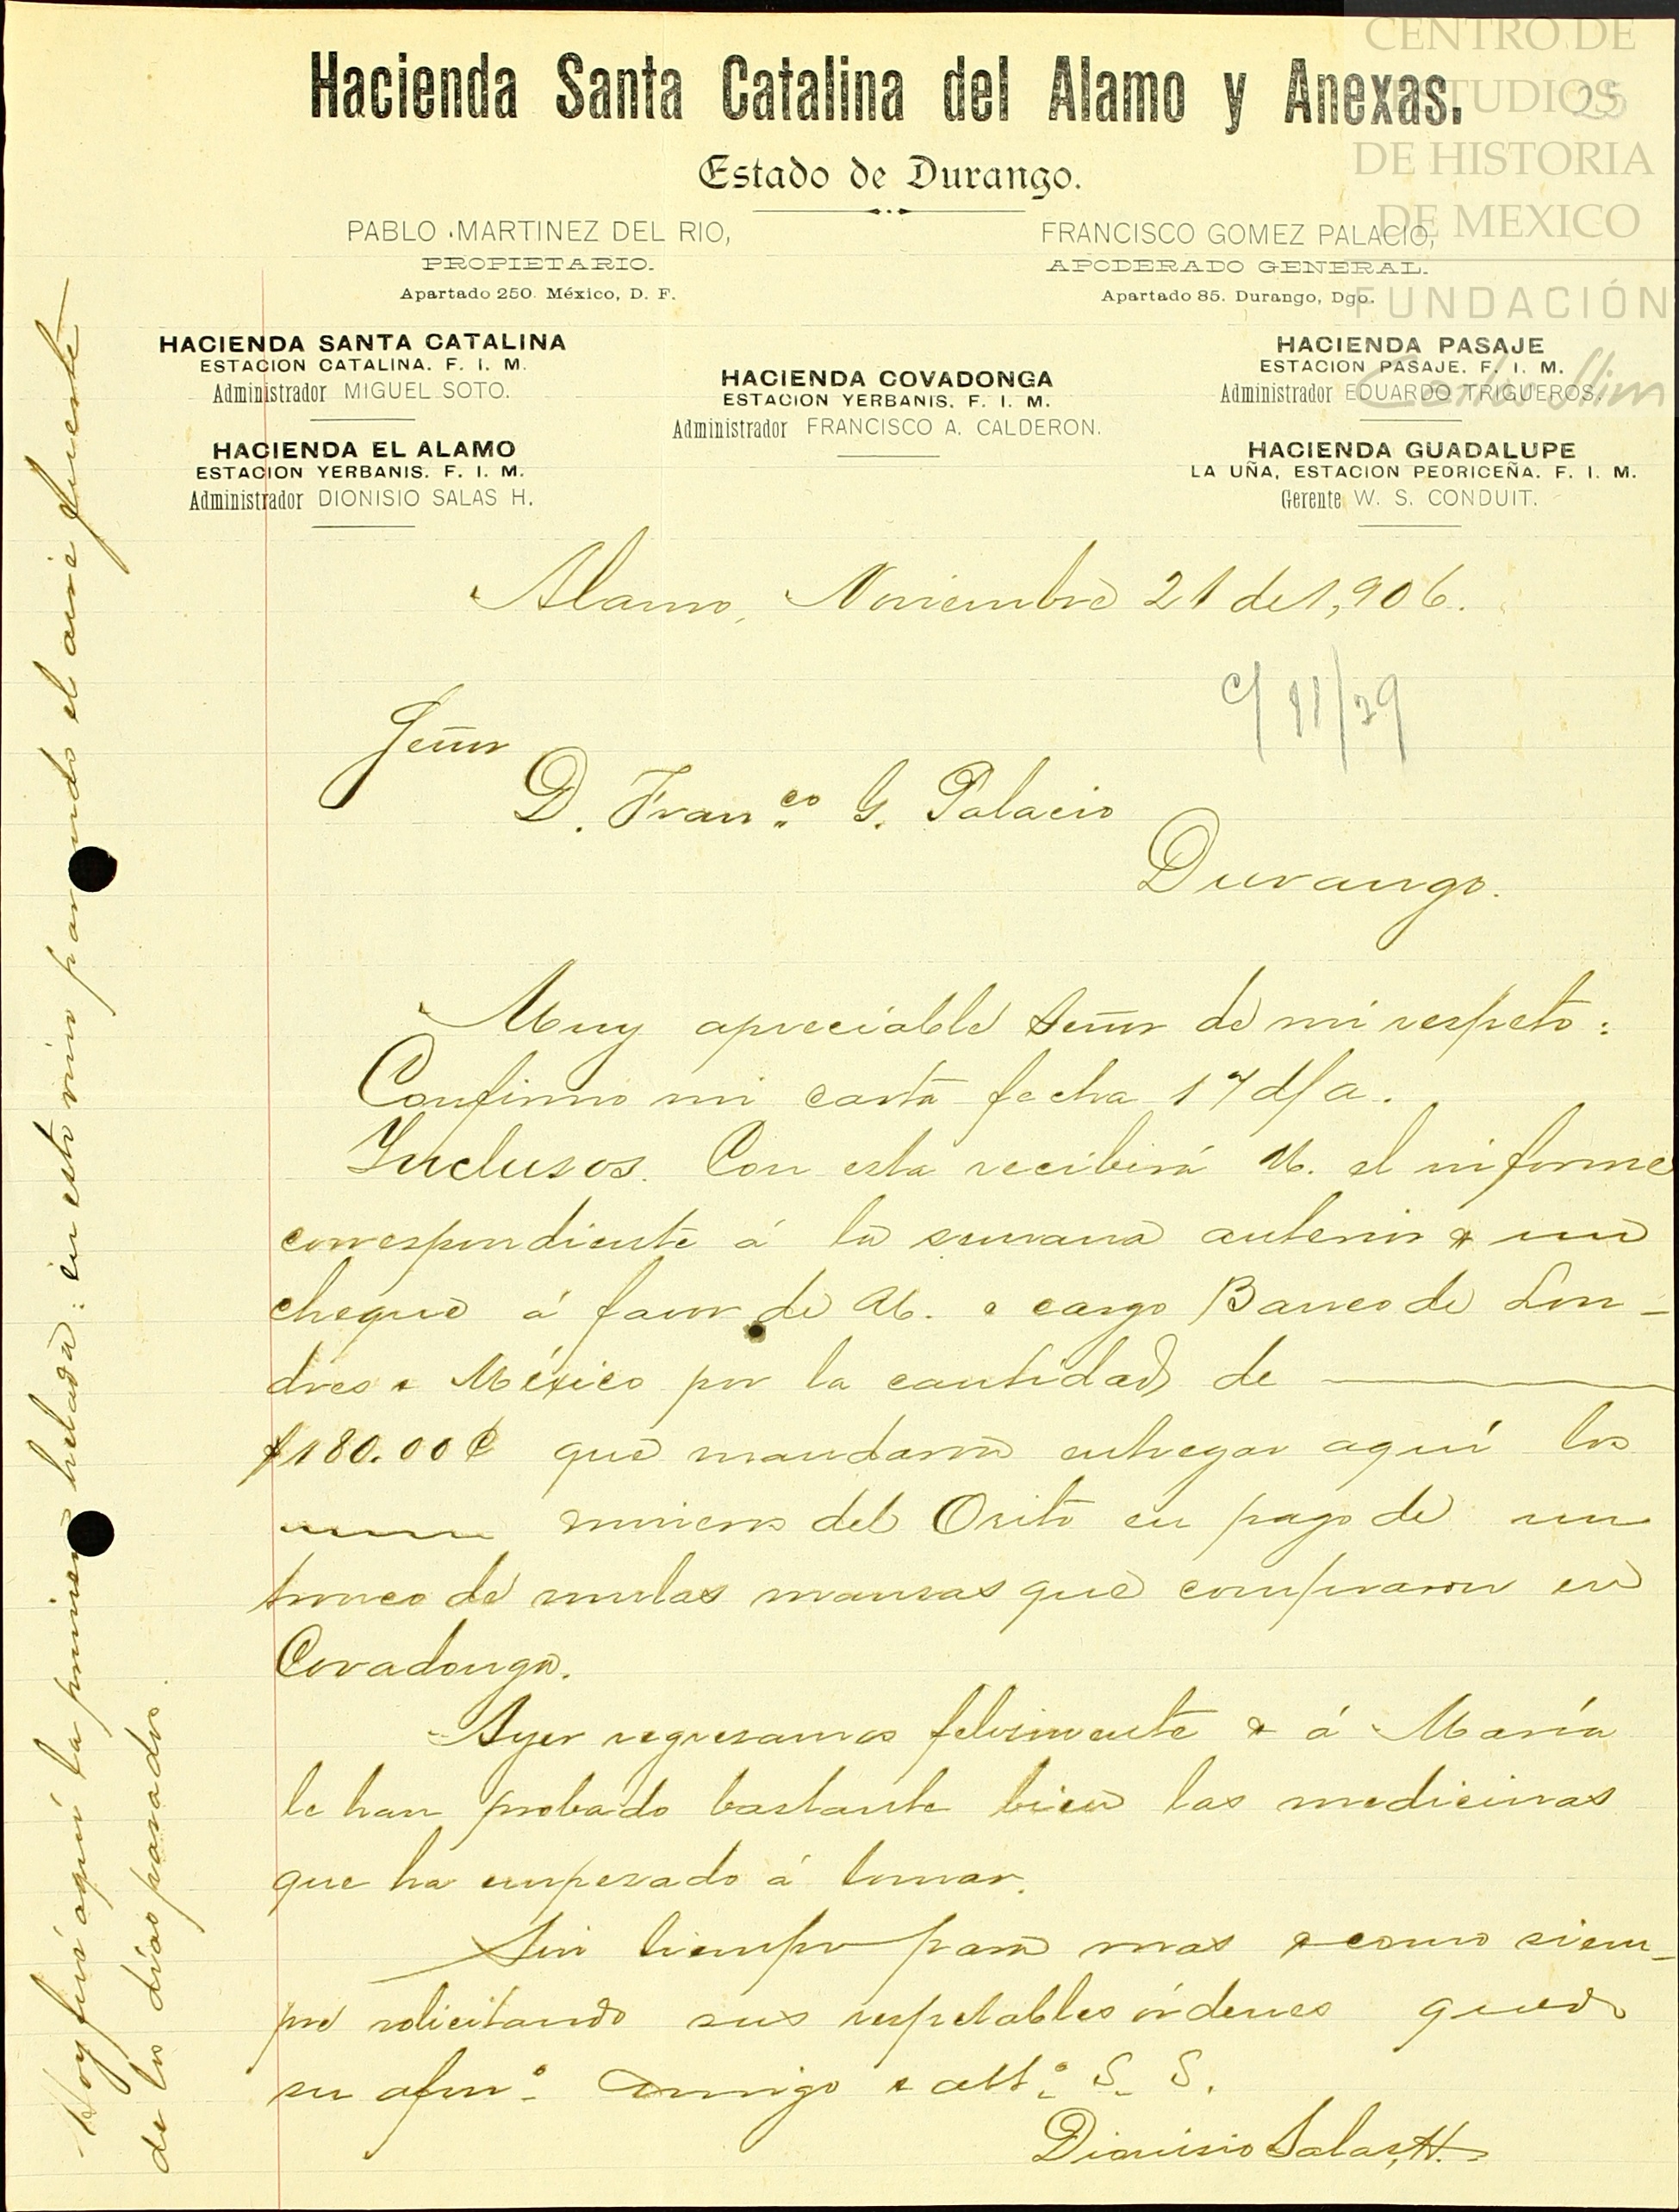 CENTRO DE
ESTUDIOS
DE HISTORIA
DE MEXICO
FUNDACIÓN
Carlos Slim
25
Hacienda Santa Catalina del Alamo y Anexas.
Estado de Durango.
PABLO MARTINEZ DEL RIO,
PROPIETARIO.
Apartado 250. México, D. F.
FRANCISCO GOMEZ PALACIO,
APODERADO GENERAL.
Apartado 85. Durango, Dgo.
HACIENDA SANTA CATALINA
ESTACION CATALINA. F. I. M.
Administrador MIGUEL SOTO.
HACIENDA EL ALAMO
ESTACION YERBANIS. F. I. M.
Administrador DIONISIO SALAS H.
HACIENDA COVADONGA
ESTACION YERBANIS. F. I. M.
Administrador FRANCISCO A. CALDERON.
HACIENDA PASAJE
ESTACION PASAJE. F. I. M.
Administrador EDUARDO TRIGUEROS.
HACIENDA GUADALUPE
LA UÑA, ESTACION PEDRICEÑA. F. I. M.
Gerente W. S. CONDUIT.
Alamo, Noviembre 21 de 1,906.
c/ 11/29
Señor
D. Franco. G. Palacio
Durango.
Muy apreciable Señor de mi respeto:
Confirmo mi carta fecha 17 d/a.
Inclusos. Con esta recibirá U. el informe
correspondiente á la semana anterior & un
cheque á favor de U. a cargo Banco de Lon-
dres & México por la cantidad de
$180.00¢ que mandaron entregar aquí los
mineros del Orito en pago de un
tronco de mulas mansas que compraron en
Covadonga.
Ayer regresamos felizmente & á María
le han probado bastante bien las medicinas
que ha empezado á tomar.
Sin tiempo para mas & como siem-
pre solicitando sus respetables órdenes quedo
su afmo. amigo & atto. S. S.
Dionisio Salas, H.
Hoy fué aquí la primera helada: en esto vino parando el aire fuerte
de los días pasados.